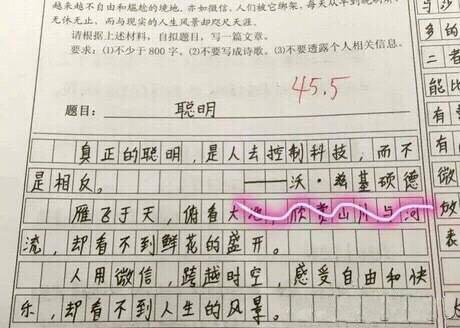 越来越不自由和尴尬的境地,亦如微信,人们被它绑架,每天从早到晚刷屏,
无休无止,而与现实的人生风景却咫尺天涯。
请根据上述材料,自拟题目,写一篇文章。
要求:(1)不少于800字。(2)不要写成诗歌。(3)不要透露个人相关信息。
45.5
题目: 聪明
真正的聪明,是人去控制科技,而不
是相反。 ——沃·兹基硕德
雁飞于天,俯看大地,欣赏山川与河
流,却看不到鲜花的盛开。
人用微信,跨越时空,感受自由和快
乐,却看不到人生的风景。
与沙
多的
者
能比
有
有
微
放
表